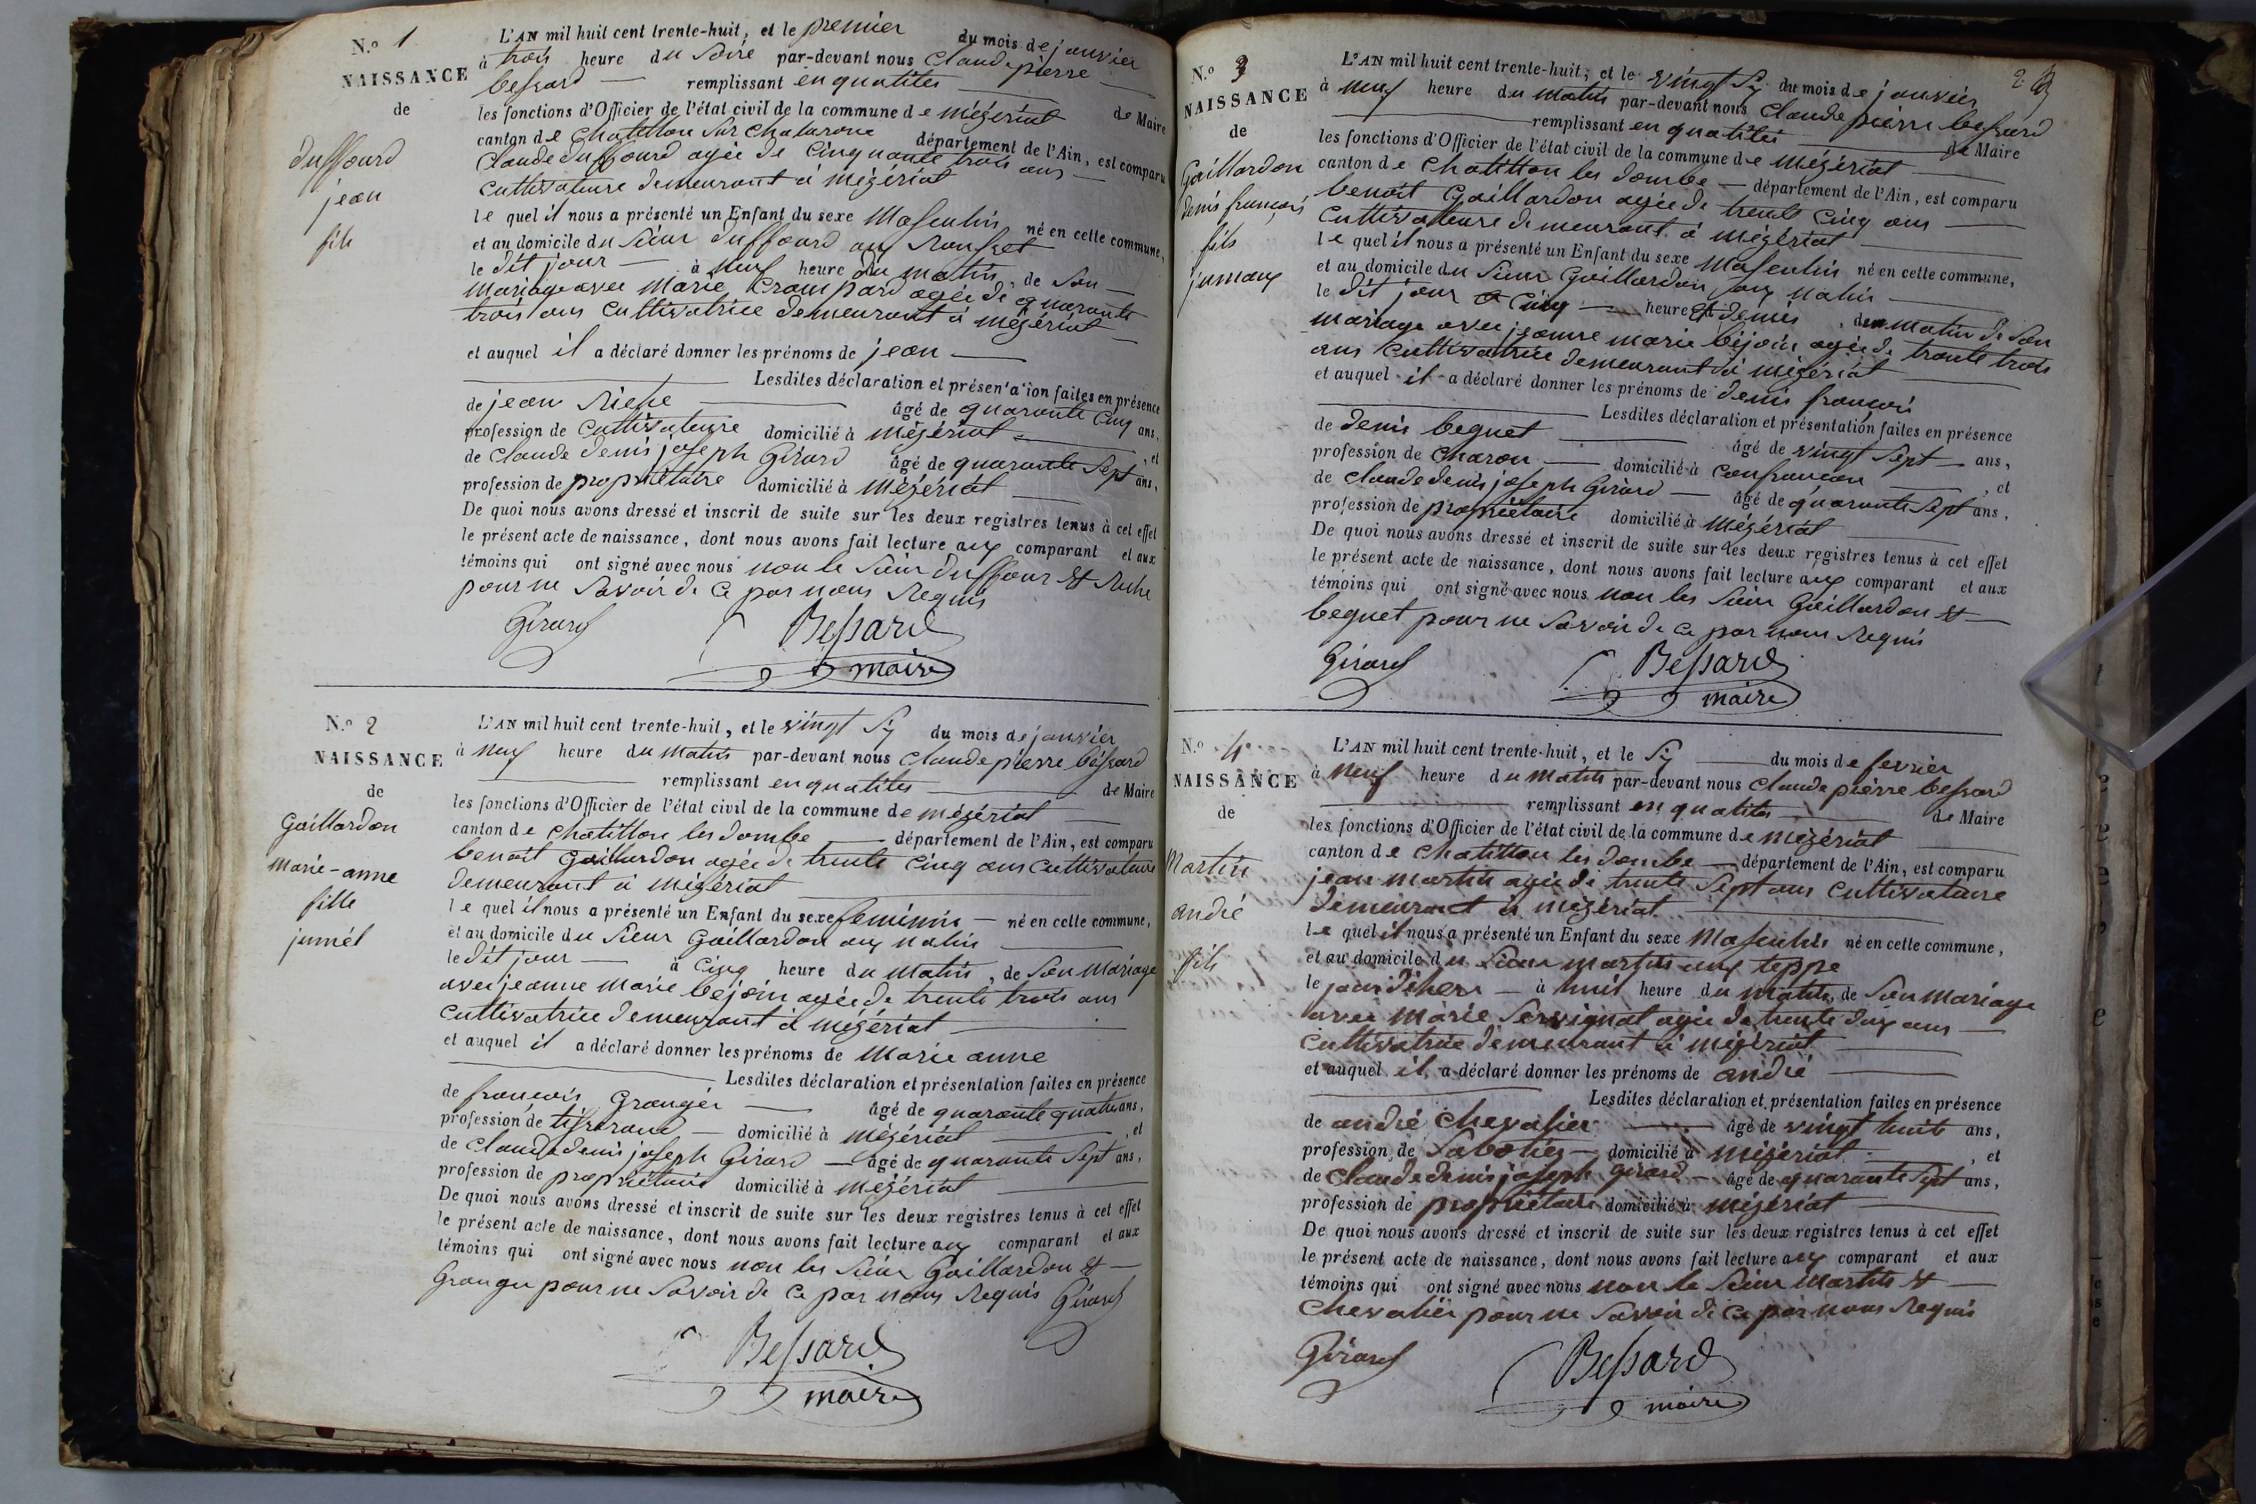 N.o 1
NAISSANCE
de
duffourd
jean
fils
L'AN mil huit cent trente-huit, et le premier du mois de janvier
à trois heure du Soire par-devant nous Claude pierre
bessard remplissant en qualites de Maire
les fonctions d'Officier de l'état civil de la commune de mézériat
canton de Chatillon sur chalarone département de l'Ain, est comparu
Claude duffourd agée de Cinquante trois ans
cultivateure demeurant à mézériat
le quel il nous a présenté un Enfant du sexe Masculin né en cette commune,
et au domicile du Sieur duffourd aux
le dit jour à neuf heure du matin, de Son
mariage avec Marie Crampard agée de quarante
trois ans Cultivatrice demeurant à mézériat
et auquel il a déclaré donner les prénoms de jean
Lesdites déclaration et présentation faites en présence
de jean Riche âgé de quarante Cinq ans,
profession de Cultivateure domicilié à mézériat, et
de Claude denis joseph Girard âgé de quarante Sept ans,
profession de propriétaire domicilié à mézériat
De quoi nous avons dressé et inscrit de suite sur les deux registres tenus à cet effet
le présent acte de naissance, dont nous avons fait lecture aux comparant et aux
témoins qui ont signé avec nous non le Sieur Duffour et Riche
pour ne Savoir de Ce par nous Requis
Girard Bessard
maire
N.o 2
NAISSANCE
de
Gaillardon
Marie-anne
fille
jumél
L'AN mil huit cent trente-huit, et le vingt Six du mois de janvier
à neuf heure du matin par-devant nous Claude pierre béssard
remplissant en qualites de Maire
les fonctions d'Officier de l'état civil de la commune de mézériat
canton de Chatillon les dombe département de l'Ain, est comparu
benoit Gaillardon agée de trente Cinq ans Cultivateure
demeurant à mézériat
le quel il nous a présenté un Enfant du sexe feminin né en cette commune,
et au domicile du Sieur Gaillardon aux
le dit jour à Cinq heure du matin, de Son mariage
avec jeanne marie béjoin agée de trente trois ans
Cultivatrice demeurant à mézériat
et auquel il a déclaré donner les prénoms de Marie anne
Lesdites déclaration et présentation faites en présence
de francois Granger âgé de quarante quatre ans,
profession de tisserand domicilié à mézériat, et
de Claude denis joseph Girard âgé de quarante Sept ans,
profession de propriétaire domicilié à mézériat
De quoi nous avons dressé et inscrit de suite sur les deux registres tenus à cet effet
le présent acte de naissance, dont nous avons fait lecture aux comparant et aux
témoins qui ont signé avec nous non les Sieur Gaillardon et
Granger pour ne Savoir de Ce par nous Requis Girard
Bessard
maire
N.o 3
NAISSANCE
de
Gaillardon
denis francois
fils
jumaux
L'AN mil huit cent trente-huit, et le vingt Six du mois de janvier
à neuf heure du matin par-devant nous Claude pierre bessard
remplissant en qualites de Maire
les fonctions d'Officier de l'état civil de la commune de mézériat
canton de Chatillon les dombe département de l'Ain, est comparu
benoit Gaillardon agée de trente Cinq ans
Cultivateure demeurant à mézériat
le quel il nous a présenté un Enfant du sexe Masculin né en cette commune,
et au domicile du Sieur Gaillardon aux
le dit jour à Cinq heure et demis, du matin de Son
mariage avec jeanne marie béjoin agée de trente trois
ans Cultivatrice demeurant à mézériat
et auquel il a déclaré donner les prénoms de denis francois
Lesdites déclaration et présentation faites en présence
de denis beguet âgé de vingt Sept ans,
profession de Charon domicilié à Confrancon, et
de Claude denis joseph Girard âgé de quarante Sept ans,
profession de propriétaire domicilié à mézériat
De quoi nous avons dressé et inscrit de suite sur les deux registres tenus à cet effet
le présent acte de naissance, dont nous avons fait lecture aux comparant et aux
témoins qui ont signé avec nous non les Sieur Gaillardon et
beguet pour ne Savoir de Ce par nous Requis
Girard Bessard
maire
N.o 4
NAISSANCE
de
Martin
andré
fils
L'AN mil huit cent trente-huit, et le Six du mois de fevrier
à neuf heure du matin par-devant nous Claude pierre bessard
remplissant en qualites de Maire
les fonctions d'Officier de l'état civil de la commune de mézériat
canton de Chatillon les dombe département de l'Ain, est comparu
jean Martin agée de trente Sept ans Cultivateure
demeurant à mézériat
le quel il nous a présenté un Enfant du sexe Masculin né en cette commune,
et au domicile du Sieur martin aux teppe
le jour d'here à huit heure du matin, de Son mariage
avec marie Servignat agée de trente deux ans
Cultivatrice demeurant à mézériat
et auquel il a déclaré donner les prénoms de andré
Lesdites déclaration et présentation faites en présence
de andré Chevalier âgé de vingt huit ans,
profession de Sabotier domicilié à mézériat, et
de Claude denis joseph Girard âgé de quarante Sept ans,
profession de propriétaire domicilié à mézériat
De quoi nous avons dressé et inscrit de suite sur les deux registres tenus à cet effet
le présent acte de naissance, dont nous avons fait lecture aux comparant et aux
témoins qui ont signé avec nous non le Sieur Martin et
Chevalier pour ne Savoir de Ce par nous Requis
Girard Bessard
maire